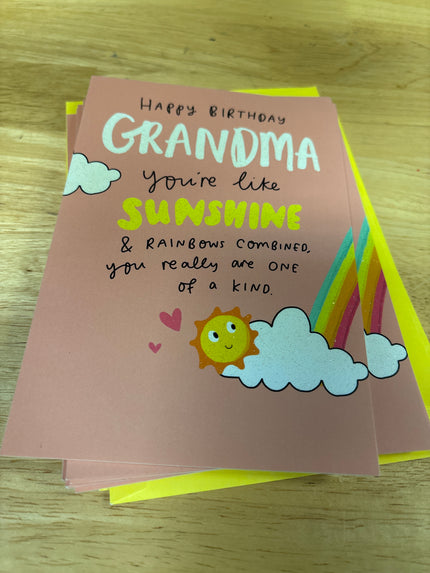 HAPPY BIRTHDAY
GRANDMA
you're like
SUNSHINE
& RAINBOWS COMBINED,
you really are ONE
OF a KIND.